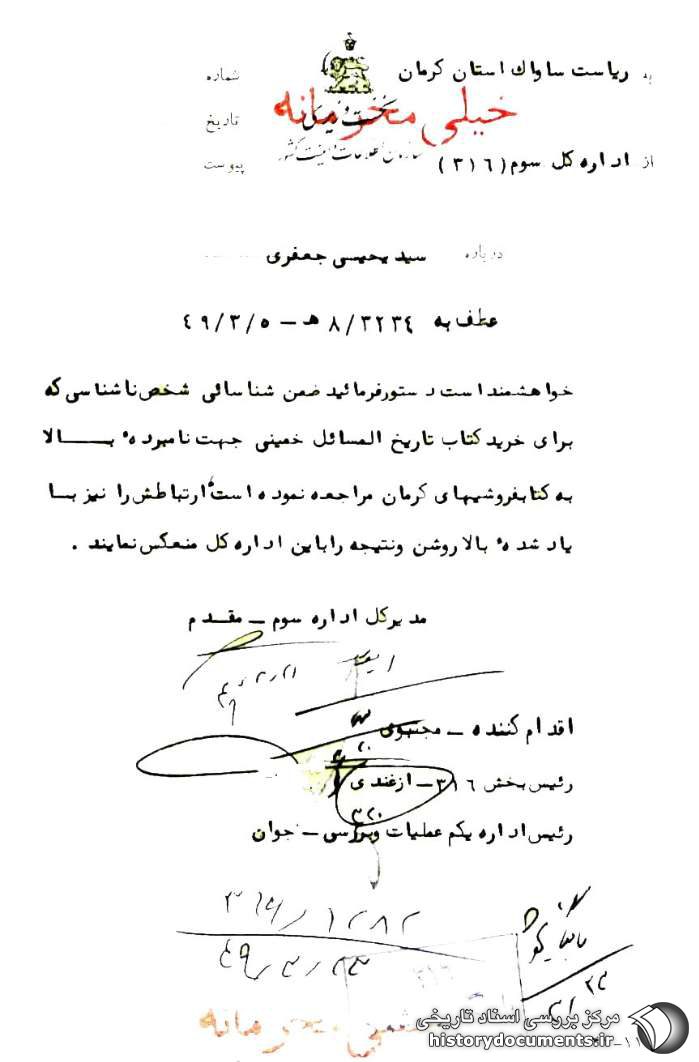 به ریاست ساواک استان کرمان
شماره
خیلی محرمانه
نخست وزیری
تاریخ
سازمان اطلاعات و امنیت کشور
از اداره کل سوم (٣١٦)
پیوست
درباره سید یحیی جعفری
عطف به ٨/٣٢٣٤ هـ – ٤٩/٣/٥
خواهشمند است دستور فرمائید ضمن شناسائی شخص ناشناسی که
برای خرید کتاب تاریخ المسائل خمینی جهت نامبرده بالا
به کتابفروشیهای کرمان مراجعه نموده است ارتباطش را نیز با
یاد شده بالا روشن ونتیجه را باین اداره کل منعکس نمایند .
مدیرکل اداره سوم – مقدم
اقدام کننده – مجتبوی
رئیس بخش ٣١٦ – ازغندی
رئیس اداره یکم عملیات وبررسی – جوان
بایگانی شود
٤٩/٣/٢٣
٣١٦
مرکز بررسی اسناد تاریخی
historydocuments.ir